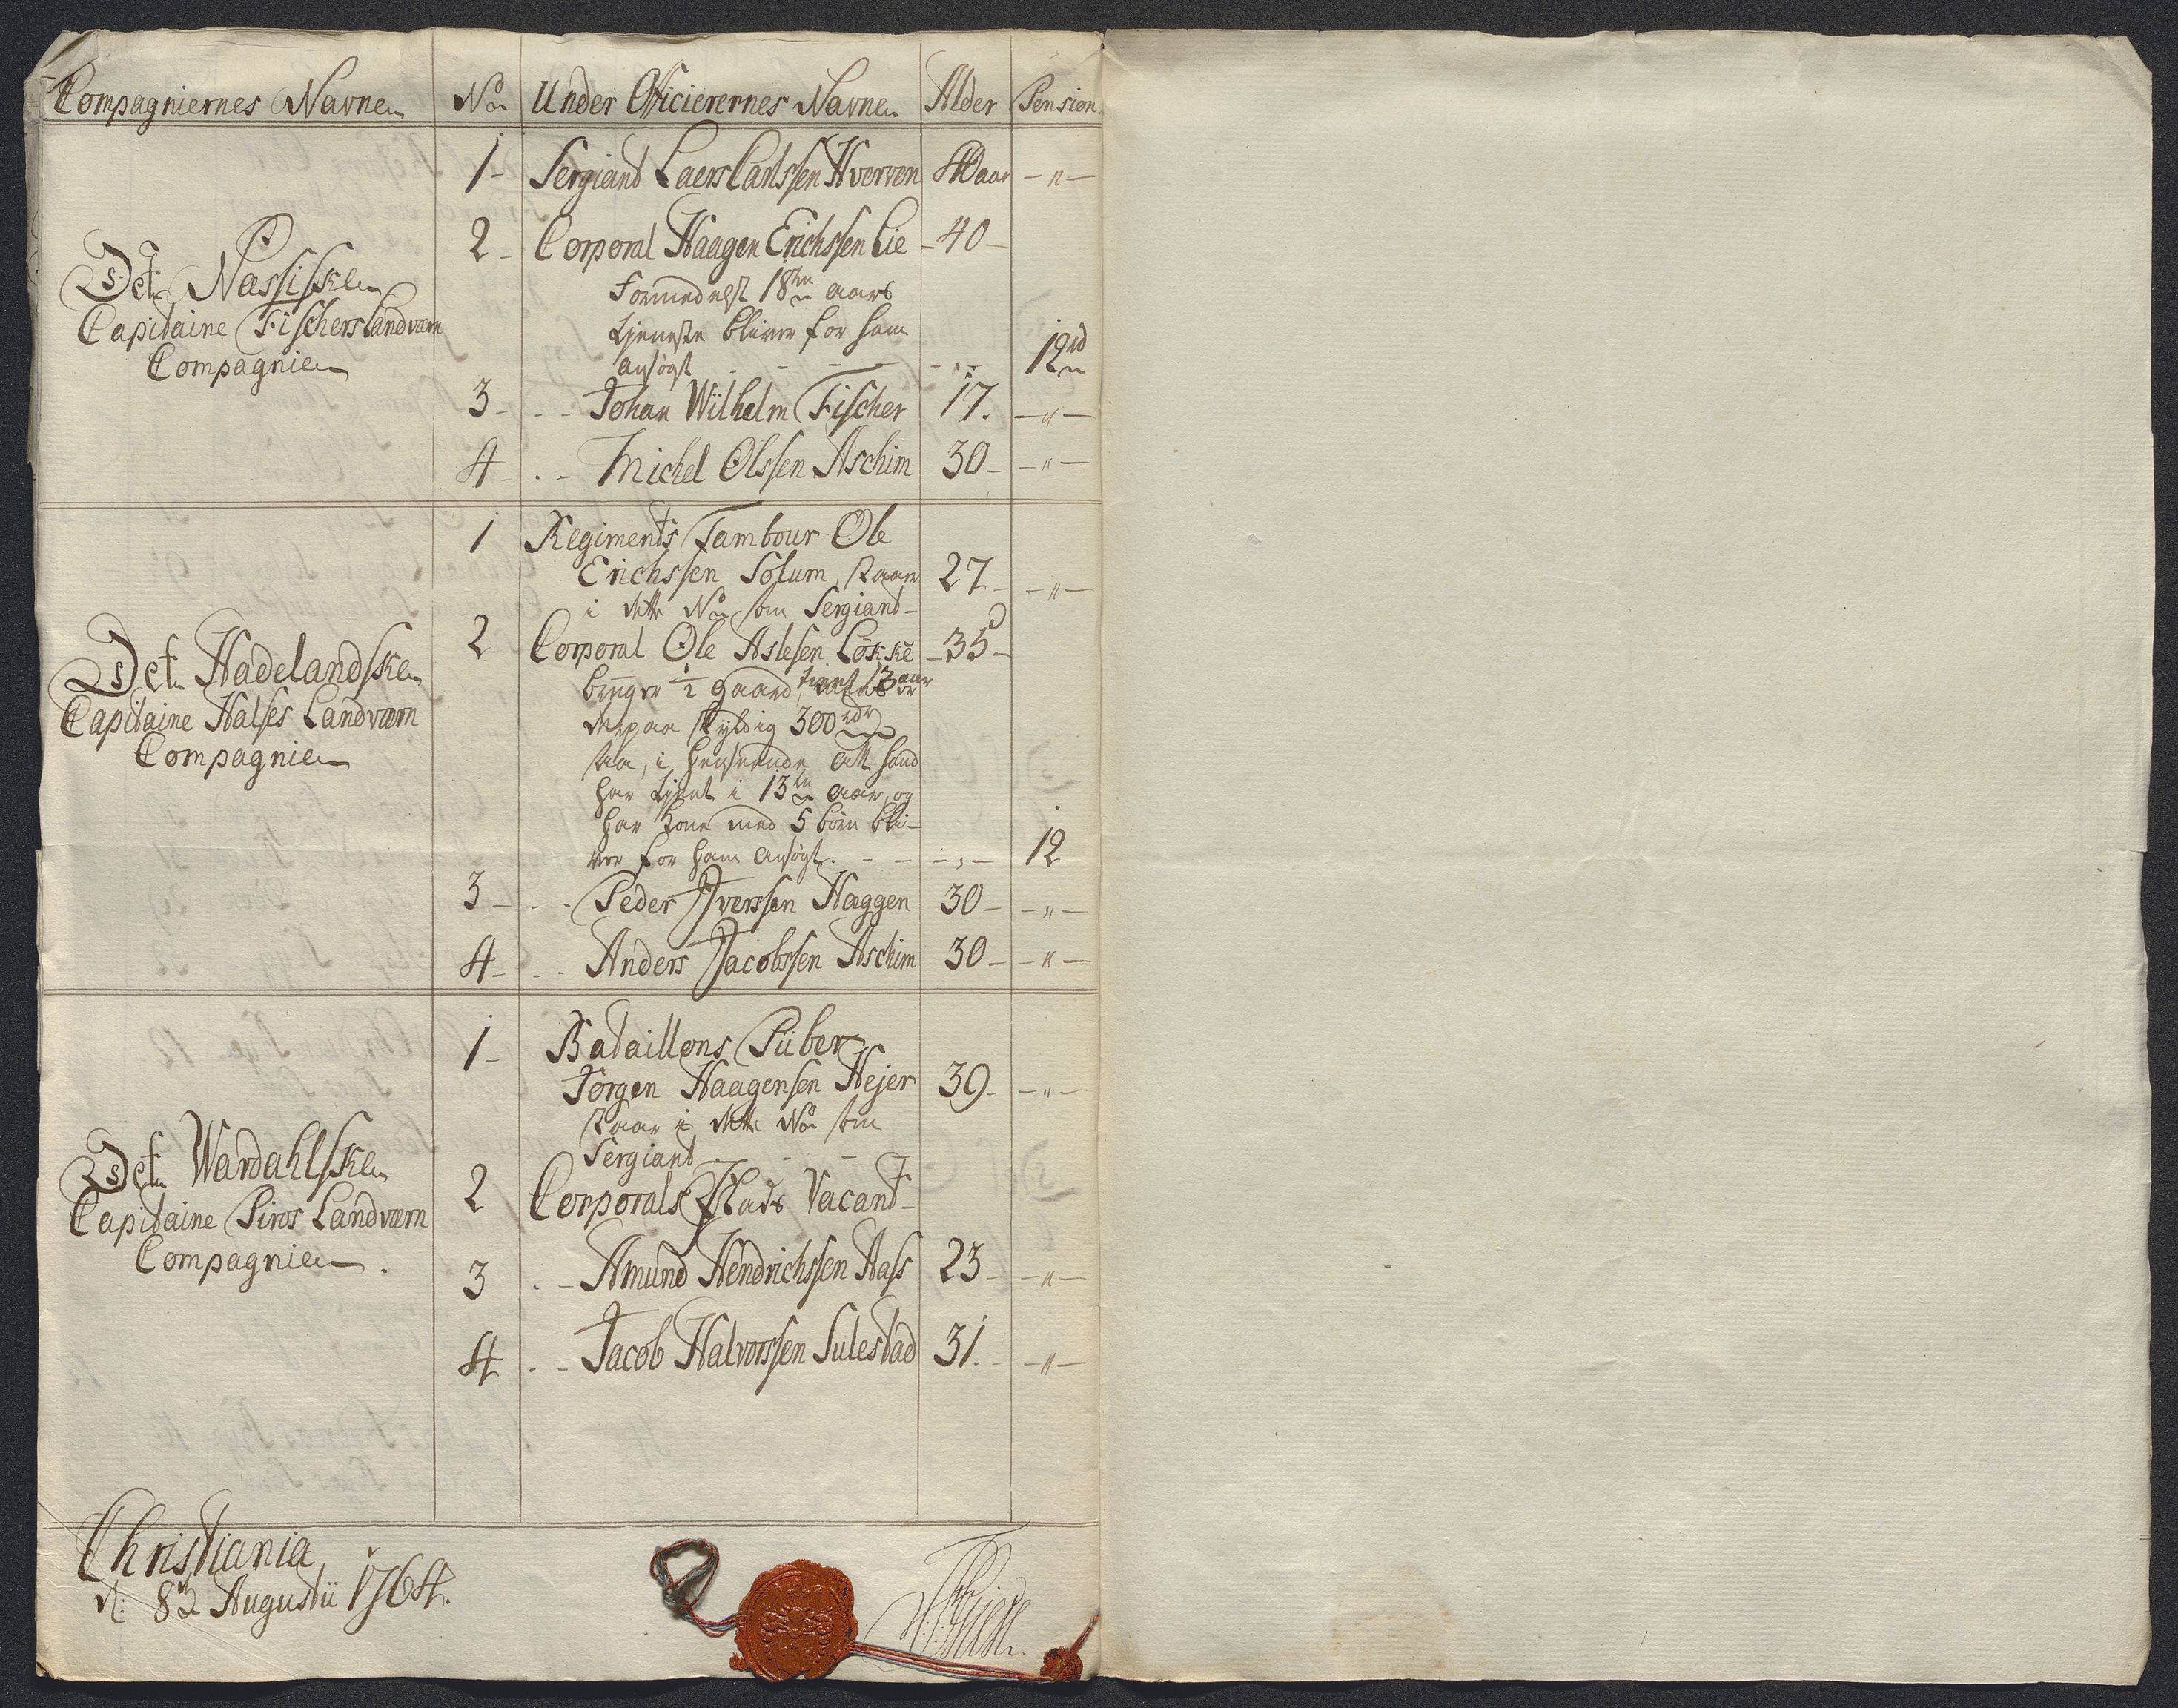 Compagniernes Navne No Under Officierernes Navne Alder Pension
Det Næssiske
Capitaine Fischers Landværn
Compagnie
1 - Sergiant Laers Carlssen Hverven 40 aar - " -
2 - Corporal Haagen Erichssen Lie - 40 -
Formedelst 18ten aars
tjeneste bliver for ham
ansøgt - - - 12 rd
3 - - - Johan Wilhelm Fischer 17. - " -
4 - - - Michel Olssen Aschim 30 - - " -
Det Hadelandske
Capitaine Halses Landværn
Compagnie
1 Regiments Tambour Ole
Erichssen Solum, staar 27 - - " -
i dette No som Sergiant -
2 Corporal Ole Aslesen Løkke - 35 -
bruger 1/2 gaard, tient 13 aar
derpaa skyldig 300 rdr
saa, i henseende att hand
har tjent i 13ten aar, og
har kone med 5 børn bli-
ver for ham ansøgt. - - - 12
3 - - - Peder Iverssen Haggen 30 - - " -
4 - - - Anders Jacobssen Aschim 30 - - " -
Det Wardahlske
Capitaine Piros Landværn
Compagnie.
1 - Bataillons Piiber
Jørgen Haagensen Hejer 39 - - " -
staar i dette No som
Sergiant - -
2 Corporals Plads Vacant -
3 - - Amund Hendrichssen Aass 23 - - " -
4 - - Jacob Halvorssen Sulestad 31. - - " -
Christiania
d: 8de Augustii 1764.